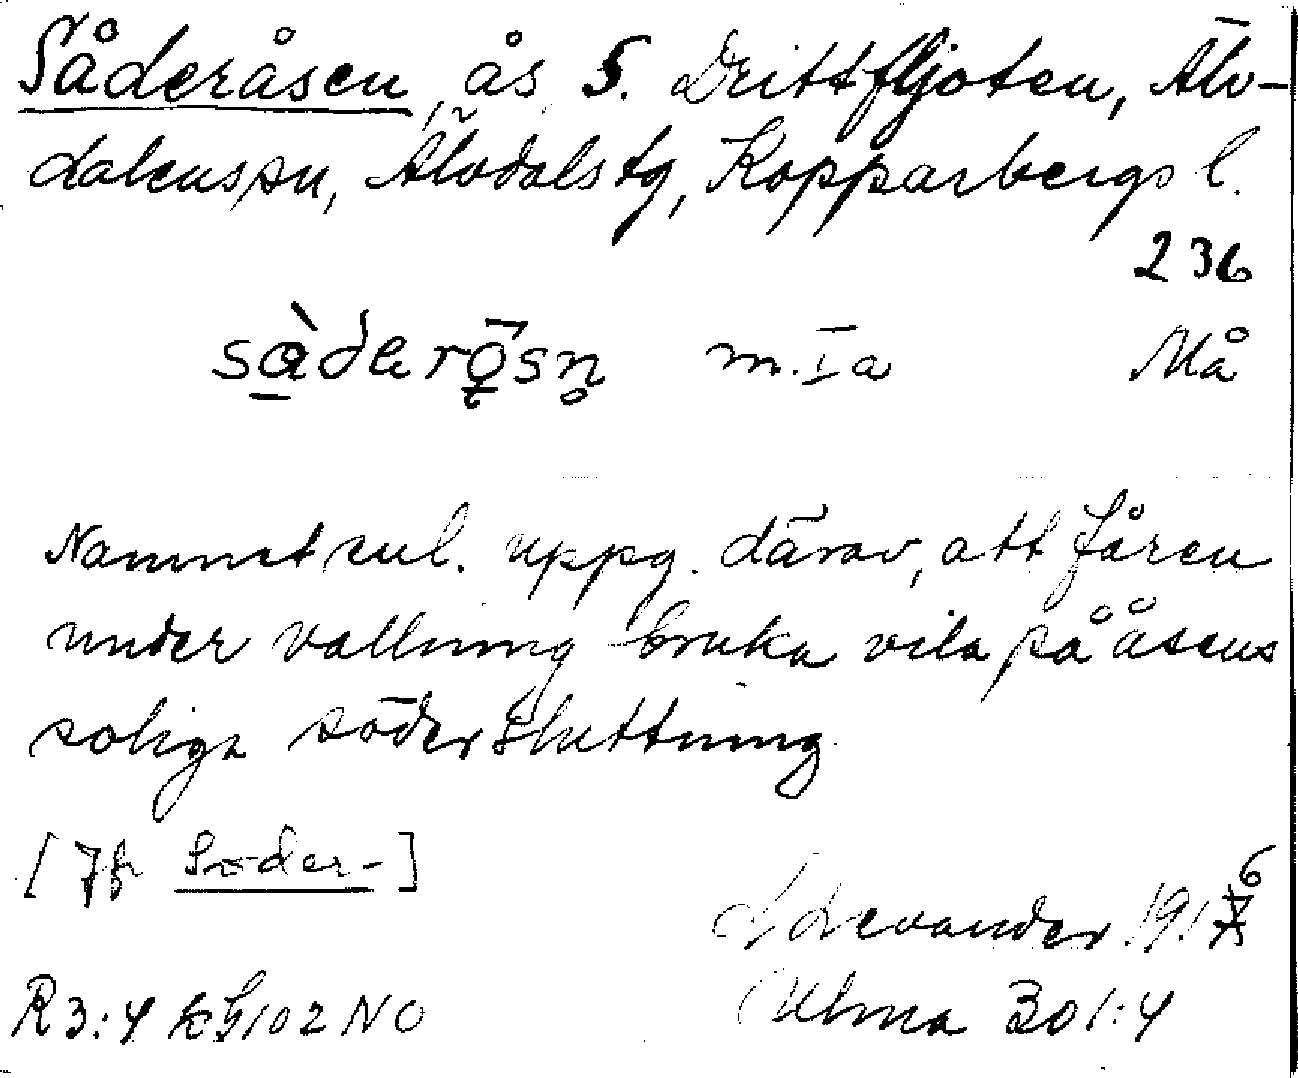 Såderåsen, ås S. Drittfljoten, Älv-
dalens sn, Älvdals tg, Kopparbergs l.
236
sàderǭsn̥ m. Ia Må
Namnet enl. uppg. därav, att fåren
under vallning bruka vila på åsens
soliga södersluttning
[Jfr Söder-]
L Levander 1916
R3:4 kg102 NO Ulma 301:4